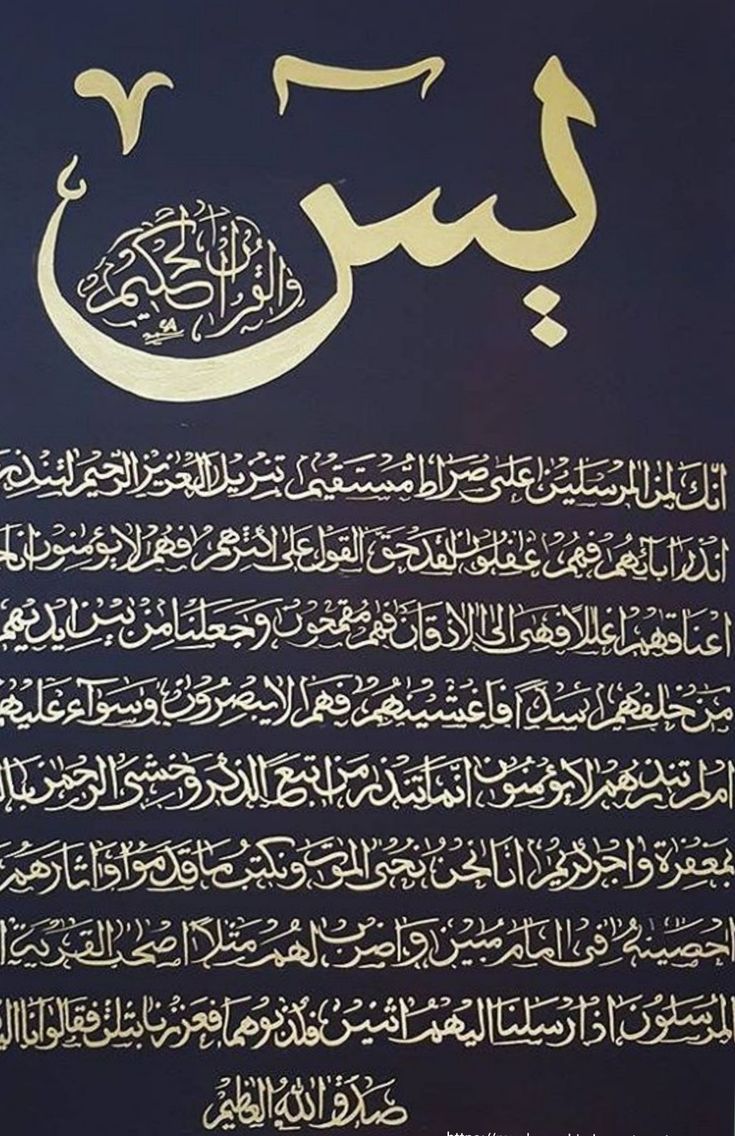 يسٓ
والقرآن الحكيم
انك لمن المرسلين على صراط مستقيم تنزيل العزيز الرحيم لتنذر
انذر ابآئهم فهم غفلون لقد حق القول على اكثرهم فهم لا يؤمنون
اعناقهم اغللا فهى الى الاذقان فهم مقمحون وجعلنا من بين ايديهم
من خلفهم سدا فاغشينهم فهم لا يبصرون وسوآء عليهم
ام لم تنذرهم لا يؤمنون انما تنذر من اتبع الذكر وخشى الرحمن
بمغفرة واجر كريم انا نحن نحى الموتى ونكتب ما قدموا واثارهم
احصينه فى امام مبين واضرب لهم مثلا اصحب القرية
المرسلون اذ ارسلنا اليهم اثنين فكذبوهما فعززنا بثلث فقالوا انا
صدق الله العظيم